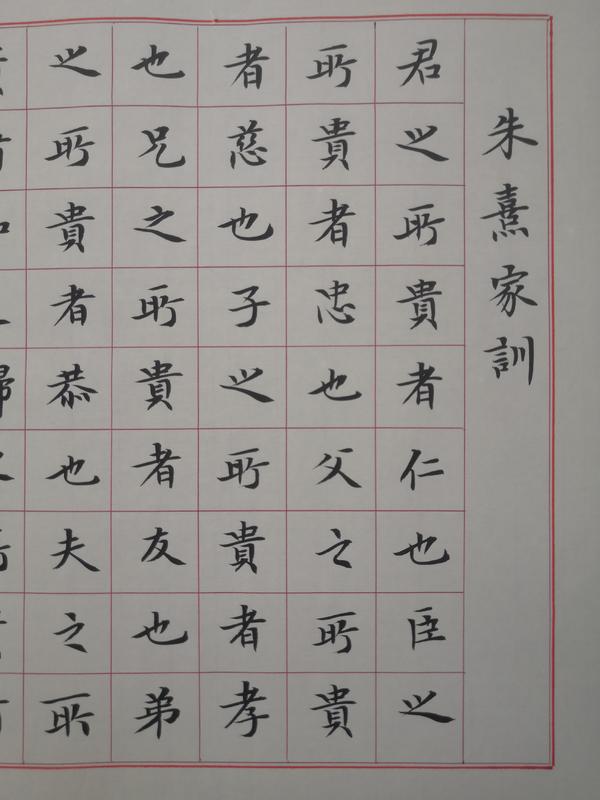 朱熹家訓
君之所貴者仁也臣之
所貴者忠也父之所貴
者慈也子之所貴者孝
也兄之所貴者友也弟
之所貴者恭也夫之所